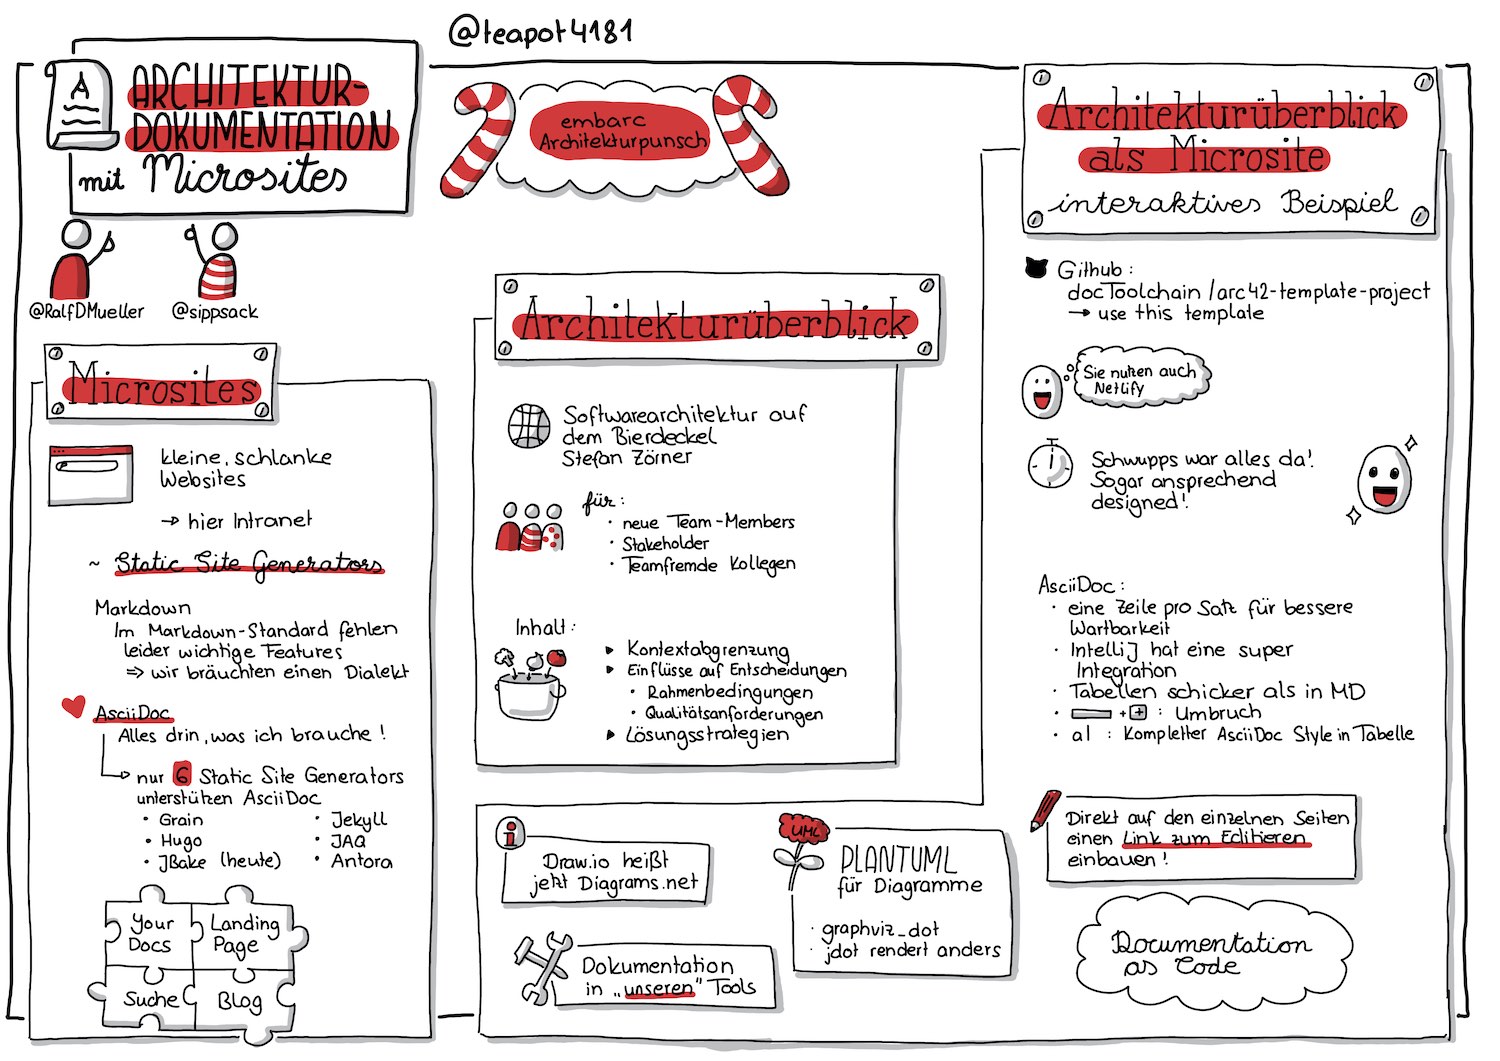 @teapot4181
A
ARCHITEKTUR-
DOKUMENTATION
mit Microsites
embarc
Architekturpunsch
@RalfDMueller
@sippsack
Microsites
kleine, schlanke
Websites
→ hier Intranet
~ Static Site Generators
Markdown
Im Markdown-Standard fehlen
leider wichtige Features
⇒ wir bräuchten einen Dialekt
AsciiDoc
Alles drin, was ich brauche!
nur 6 Static Site Generators
unterstützen AsciiDoc
· Grain
· Hugo
· JBake (heute)
· Jekyll
· JAQ
· Antora
Your
Docs
Landing
Page
Suche
Blog
Architekturüberblick
Softwarearchitektur auf
dem Bierdeckel
Stefan Zörner
für:
· neue Team-Members
· Stakeholder
· Teamfremde Kollegen
Inhalt:
▸ Kontextabgrenzung
▸ Einflüsse auf Entscheidungen
· Rahmenbedingungen
· Qualitätsanforderungen
▸ Lösungsstrategien
i
Draw.io heißt
jetzt Diagrams.net
Dokumentation
in „unseren" Tools
UML
PLANTUML
für Diagramme
· graphviz_dot
· jdot rendert anders
Architekturüberblick
als Microsite
interaktives Beispiel
Github:
docToolchain/arc42-template-project
→ use this template
Sie nutzen auch
Netlify
Schwupps war alles da!
Sogar ansprechend
designed!
AsciiDoc:
· eine Zeile pro Satz für bessere
Wartbarkeit
· IntelliJ hat eine super
Integration
· Tabellen schicker als in MD
· + + : Umbruch
· al : Kompletter AsciiDoc Style in Tabelle
Direkt auf den einzelnen Seiten
einen Link zum Editieren
einbauen!
Documentation
as Code